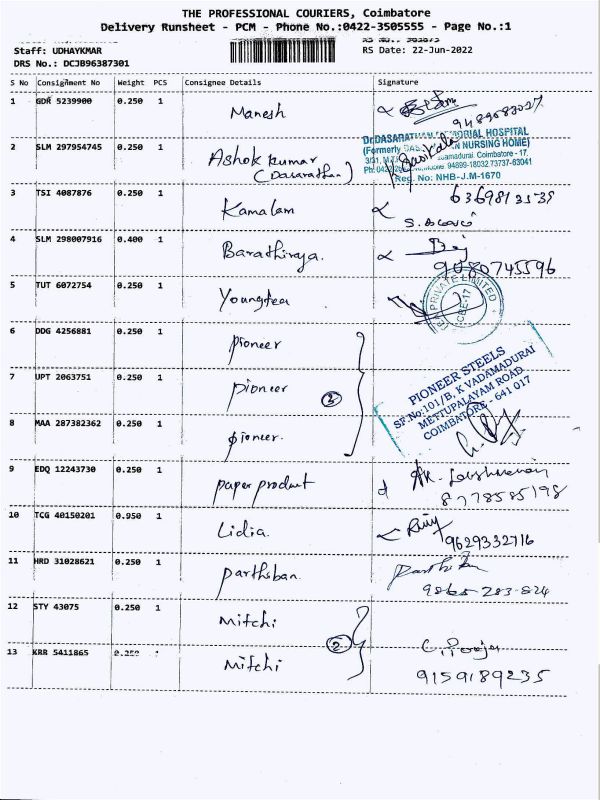 THE PROFESSIONAL COURIERS, Coimbatore
Delivery Runsheet - PCM - Phone No.:0422-3505555 - Page No.:1
Staff: UDHAYKMAR
RS Date: 22-Jun-2022
DRS No.: DCJB96387301
S No Consignment No Weight PCS Consignee Details Signature
1 GDR 5239900 0.250 1 Manesh
9489083027
2 SLM 297954745 0.250 1 Ashok kumar
(Dasarathan)
Dr.DASARATHAN MEMORIAL HOSPITAL
(Formerly NURSING HOME)
Coimbatore - 17.
94899-18032 73737-83041
Reg. No: NHB-J.M-1670
Sasikala
3 TSI 4087876 0.250 1 Kamalam
6369812539
4 SLM 298007916 0.400 1 Barathiraja.
9080745596
5 TUT 6072754 0.250 1 Youngtea
PRIVATE LIMITED
CBE-17
6 DDG 4256881 0.250 1 pioneer
7 UPT 2063751 0.250 1 pioneer
3
8 MAA 287382362 0.250 1 pioneer.
PIONEER STEELS
SF.No:101/B, K VADAMADURAI
METTUPALAYAM ROAD
COIMBATORE - 641 017
9 EDQ 12243730 0.250 1 paper product
8778585198
10 TCG 40150201 0.950 1 Lidia.
9629332716
11 HRD 31028621 0.250 1 parthiban.
9865-283-824
12 STY 43075 0.250 1 Mitchi
2
13 KRR 5411865 0.250 1 Mitchi
C. Pooja
9159189235